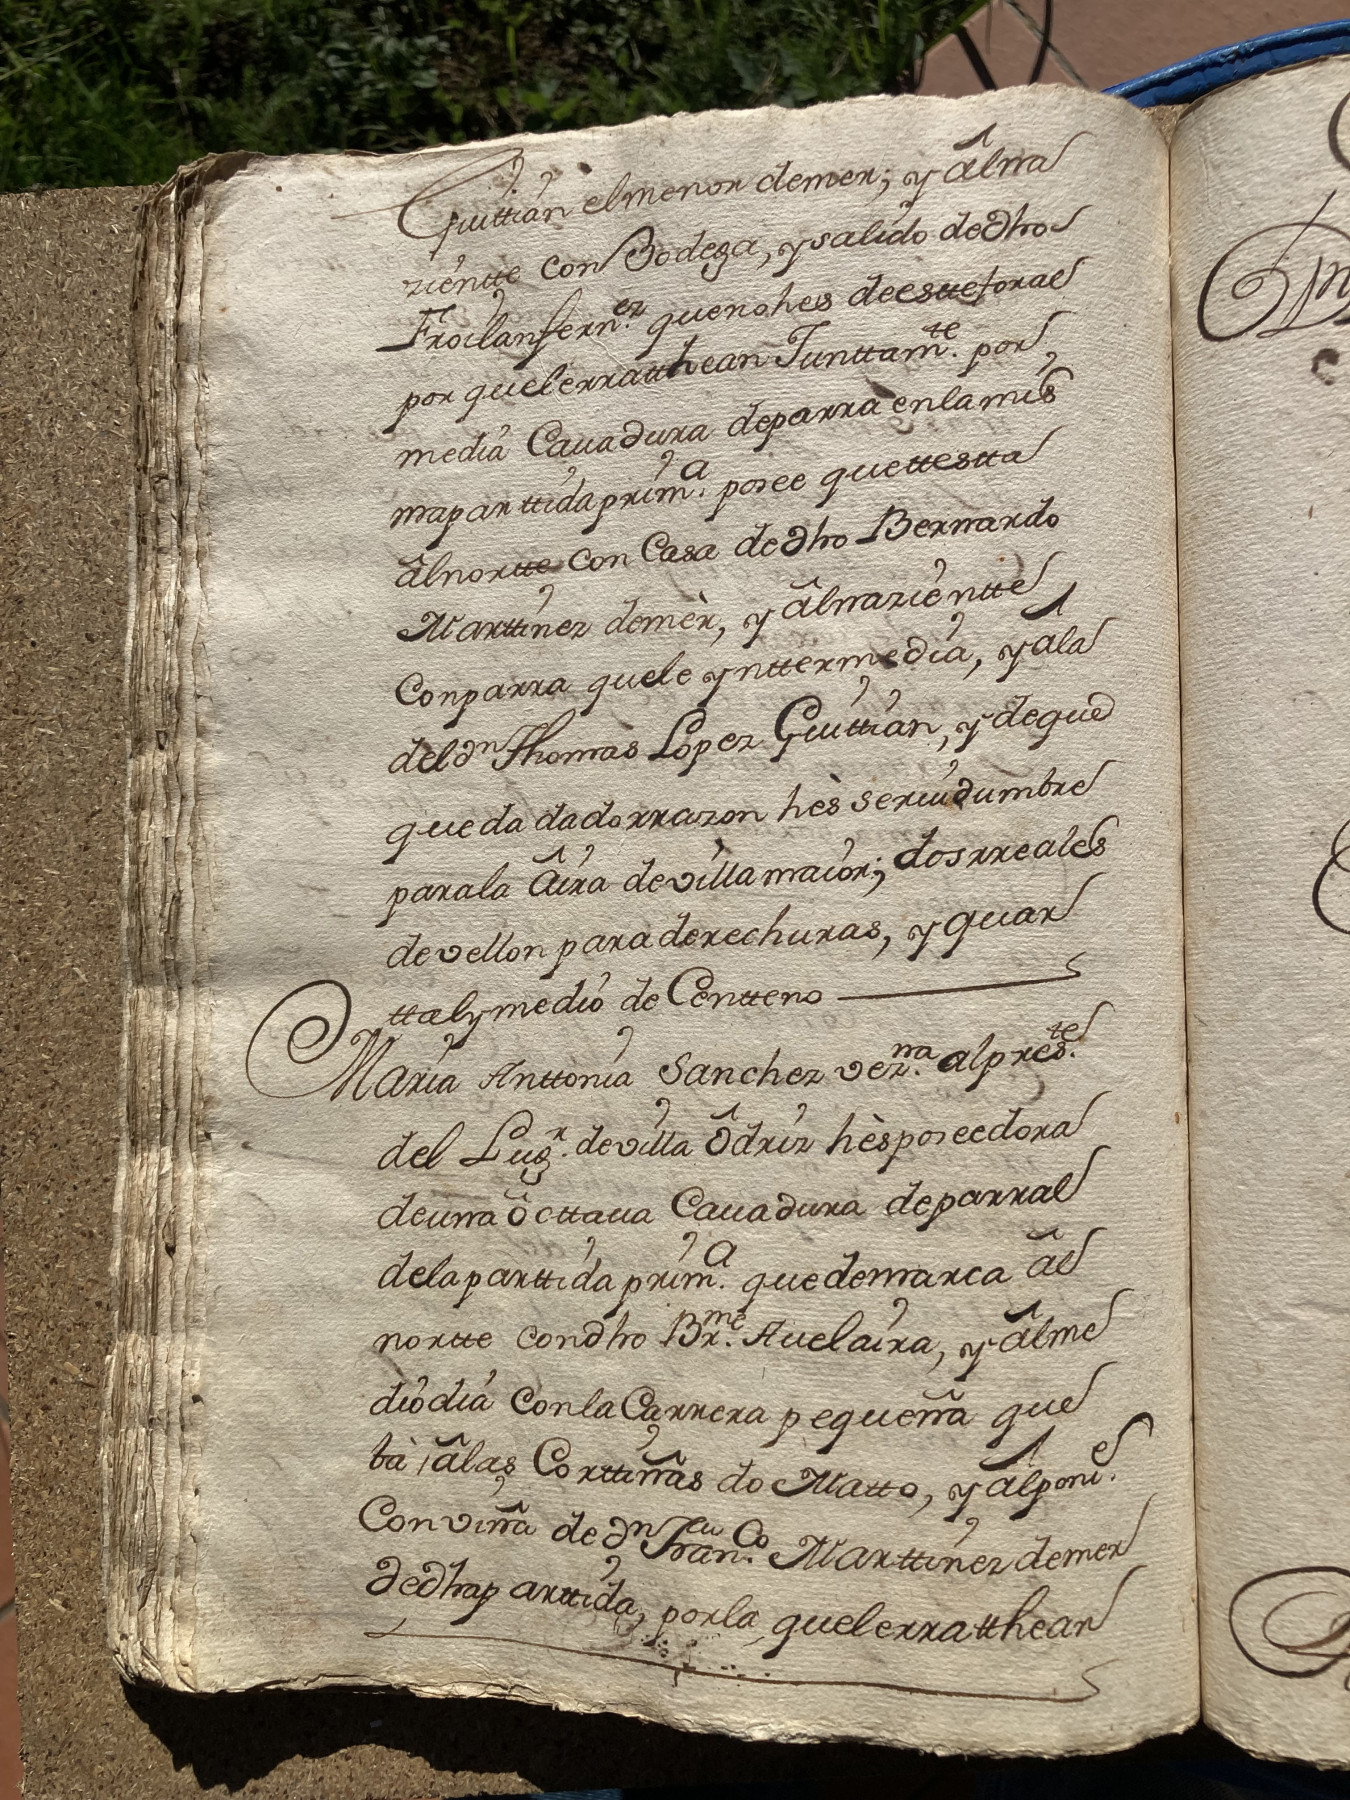 Guittián el menor de mer; y âl na
ziéntte con Bodega, y salido de dho
Froilan fern.ez que no hes de este foral
por que lerratthean Junttam.te por
media Cauadura de parra en la mis
ma parttida prim.a posee que ttestta
âl nortte con Casa de dho Bernardo
Marttinez demèr, y âl naziéntte
Con parra que le ynttermedia, y ala
del dn Thomas Lopez Guittián, y de que
queda dado rrazon hès seruidumbre
para la âira de villamaior; dos rreales
de vellon para derechuras, y quar
ttal y medio de Centteno
Maria Anttonia Sanchez vez.na al pres.te
del Lug.r de villa ôdriz hès poseedora
de una ôcttaua Cauadura de parral
de la parttida prim.a que demarca âl
nortte con dho Br.me Auelaira, y âl me
dio dia Con la Carrera pequeña que
bà âlas Corttiñas do Matto, y âl poni.e
Con viña de dn Fran.co Marttinez demer
de dha parttida, por la que lerratthean